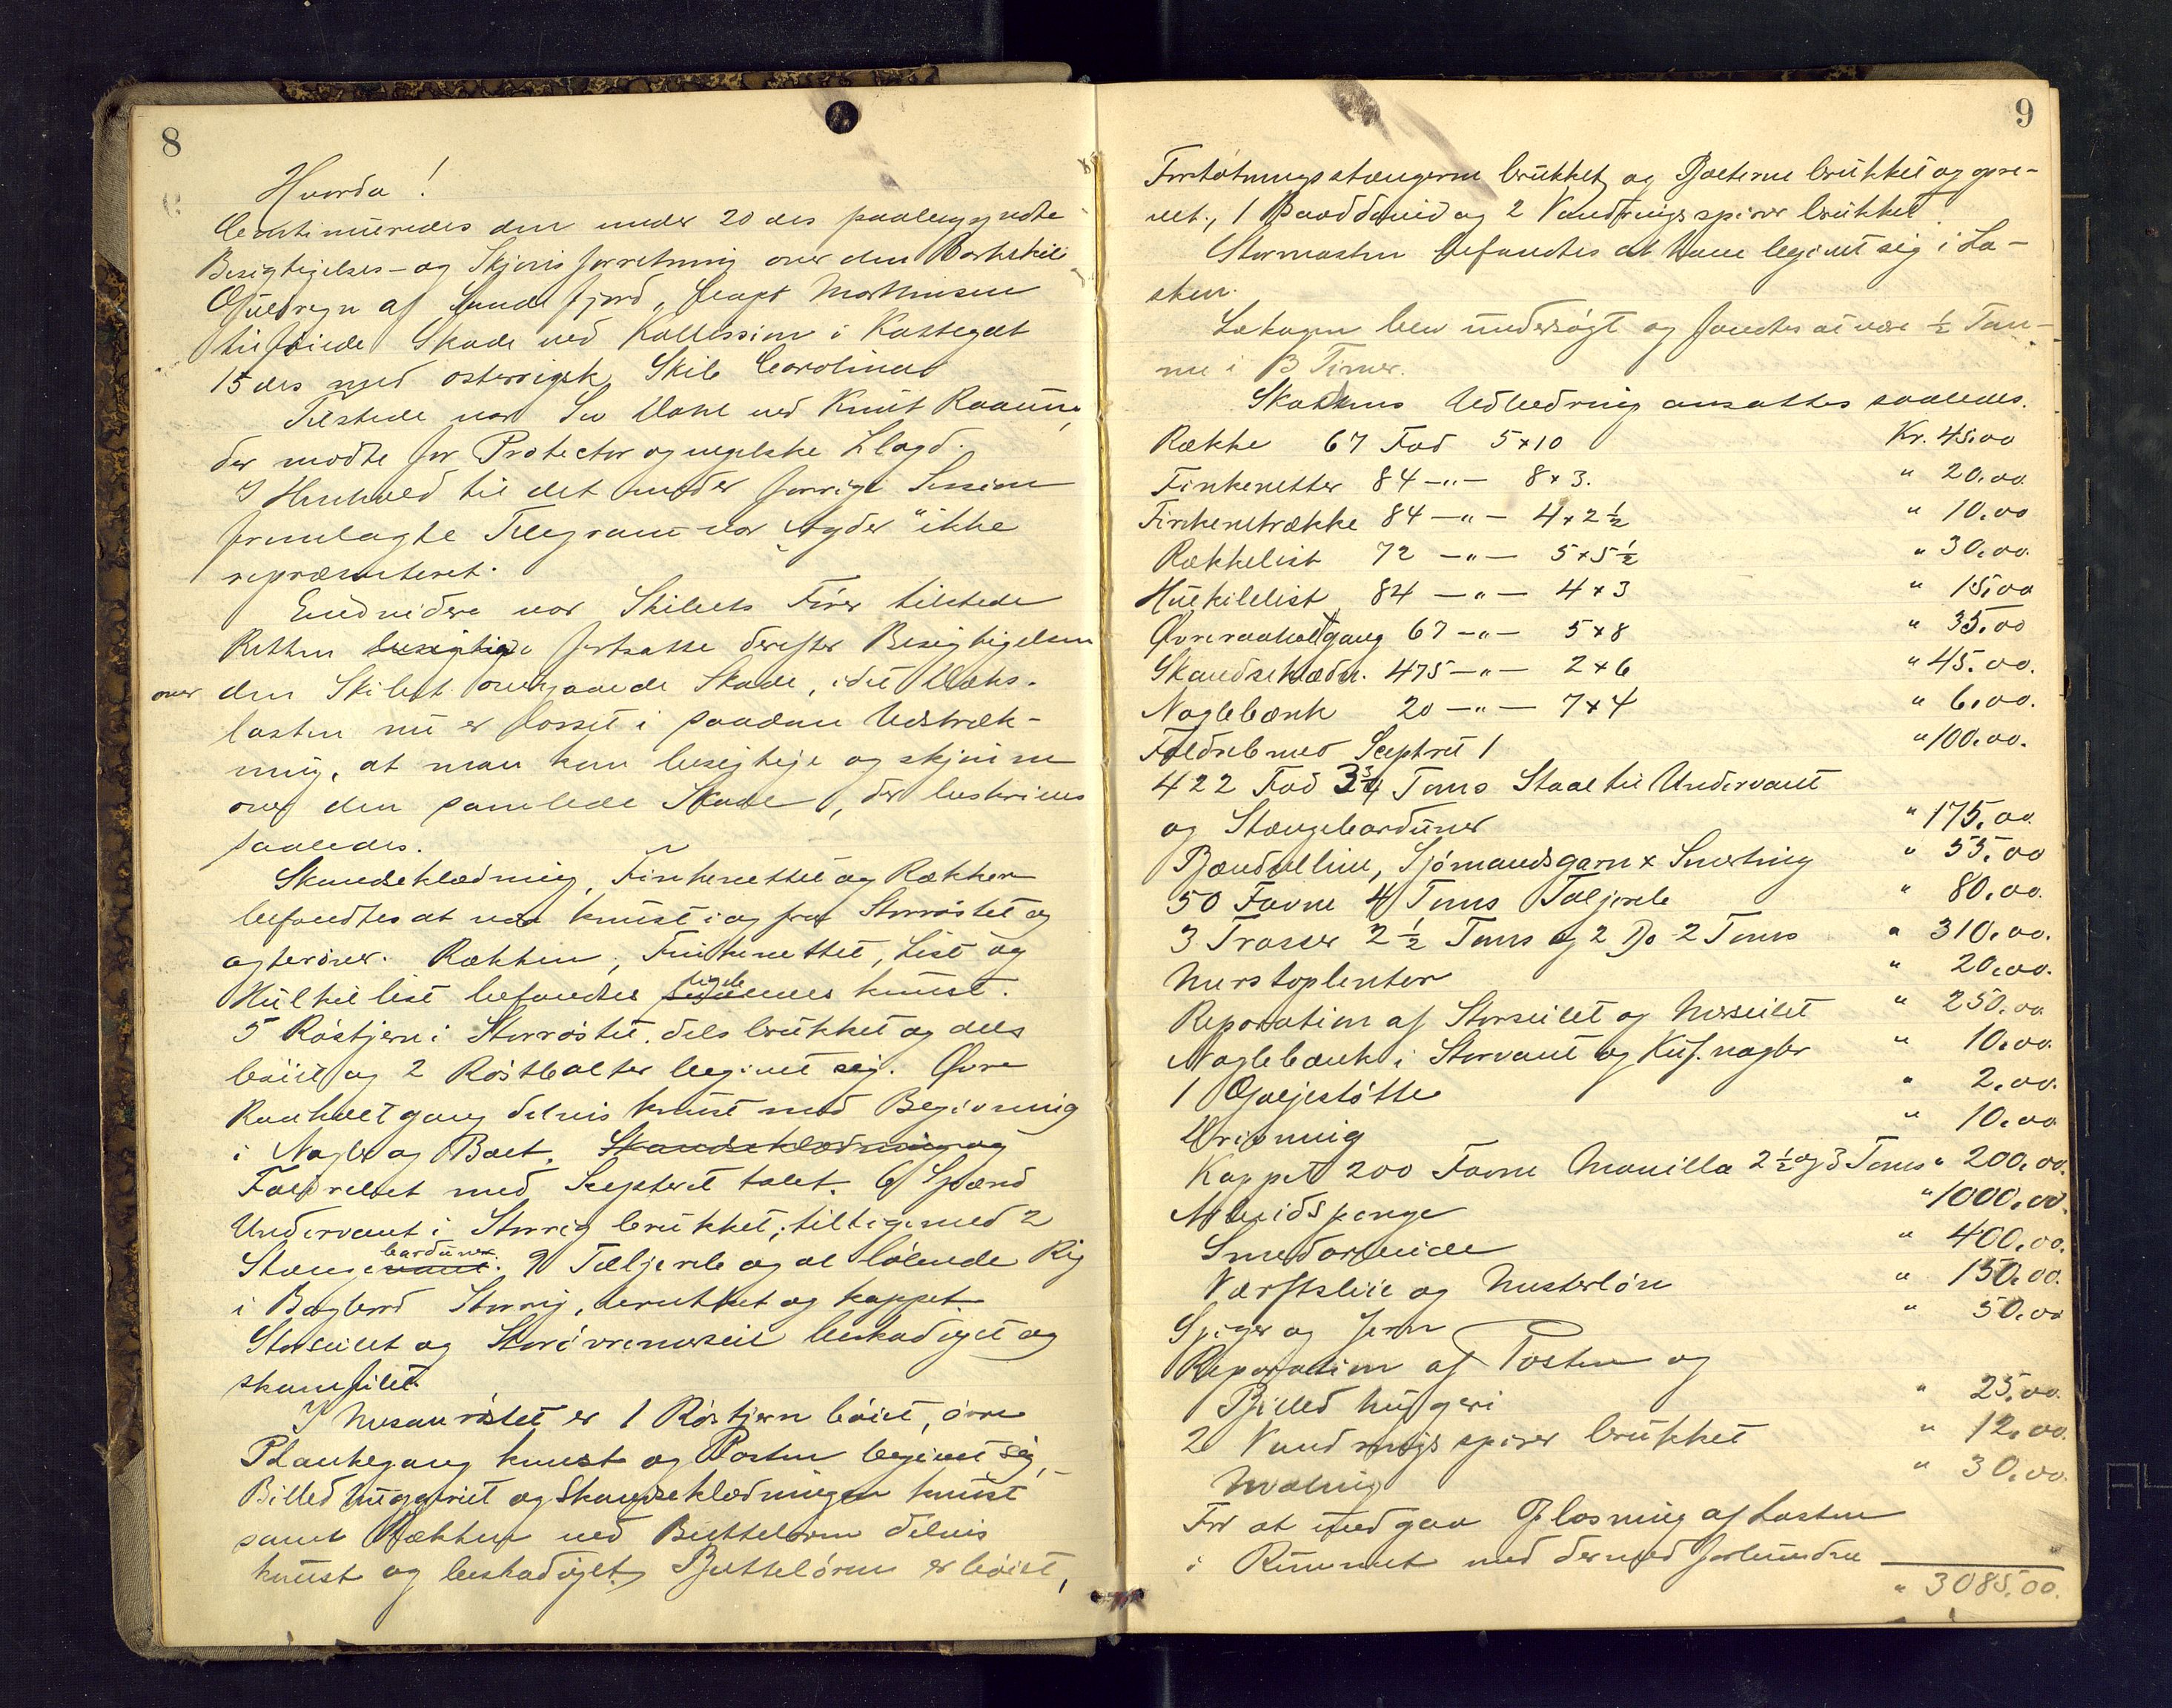 8
Hvorda!
Continueredes den under 20 des paabegyndte
Besigtigelses- og Skjønsforretning over den Barkskib
Guldregn af Sandefjord, Capt Mathisen
tilføiede Skade ved Kollission i Kattegat
15 des med østerrigsk Skib Carolina
Tilstede var Sv Dahl ved Knut Raaum,
der mødte for Protector og engelske Lloyd.
I Henhold til det under forrige Session
fremlagte Telegram var "Agder" ikke
repræsenteret.
Endvidere var Skibets Fører tilstede
Retten besigtige fortsatte derefter Besigtigelsen
over den Skibet overgaaede Skade, idet Dæks-
lasten nu er losset i saadan Udstræk-
ning, at man kan besigtige og skjønne
over den samlede Skade, der beskrives
saaledes.
Skandseklædning, Finkenettet og Rækken
befandtes at være knust i og for Storrøstet og
agterover. Rækken, Finkenettet, List og
Hulkillist befandtes ligeledes knust.
5 Røstjern i Storrøstet dels brukket og dels
bøiet og 2 Røstbolter begivet sig. Øvre
Raaholtgang delvis knust med Begivning
i Nagler og Bolt. Skandseklædning og
Faldrebet med Scepteret tabt. 6 Spænd
Undervant i Storrig brukket, tilligemed 2
Stænge barduner. 9 Taljereb og al løbende Rig
i Bagbord Storrig, brukket og kappet.
Storseilet og Storøvremerseil beskadiget og
skamfilet
I Mesanrøstet er 1 Røstjern bøiet, øvre
Plankegang knust og Posten begivet sig,
Billedhuggeriet og Skandseklædningen knust
samt Rækken ved Bøttelørren delvis
knust og beskadiget. Bøttelørren er bøiet,
9
Fortøiningsstængerne brukket og Bolterne brukket og gore-
vet, 1 Baaddavid og 2 Vandringsspirer brukket
Stormasten befandtes at have begivet sig i La-
sken.
Lækagen blev undersøgt og fandtes at være ½ Tom-
me i 3 Timer.
Skadens Udbedring ansattes saaledes.
Række 67 Fod 5 x 10 Kr. 45.00
Finkenetter 84 -"- 8 x 3. " 20.00
Finkenetrække 84 -"- 4 x 2½ " 10.00
Rækkelist 72 -"- 5 x 5½ " 30.00
Hulkillist 84 -"- 4 x 3 " 15.00
Øvreraaholtgang 67 -"- 5 x 8 " 35.00
Skandseklædn. 475 -"- 2 x 6 " 45.00.
Naglebænk 20 -"- 7 x 4 " 6.00.
Faldreb med Sceptret 1 " 100.00.
422 Fod 3¾ Toms Staal til Undervant
og Stængebarduner " 175.00
Bændselline, Sjømandsgarn x Smerting " 55.00
50 Favne 4 Toms Taljereb " 80.00.
3 Trosser 2½ Toms og 2 Do 2 Toms " 310.00.
Merstoplenter " 20.00.
Reparation af Storseilet og Merseilet " 250.00
Naglebænk i Storvant og Kof.nagler " 10.00.
1 Galjestøtte " 2.00.
Drivning " 10.00
Kappet 200 Favne Manilla 2½ og 3 Toms " 200.00.
Arbeidspenge " 1000.00.
Smedarbeide " 400.00.
Værftsleie og Mesterløn " 150.00.
Spiger og Jern " 50.00
Reparation af Posten og
Billedhuggeri " 25.00.
2 Vandringsspirer brukket " 12.00.
Maling " 30.00.
For at undgaa Oplosning af Lasten
i Rummet med dermed forbundne
" 3085.00.